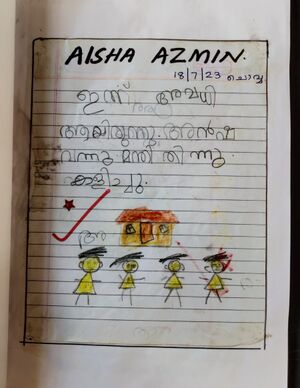 AISHA AZMIN.
18/7/23 ചൊവ്വ
ഇന്ന് അവധി
ആയിരുന്നു. അൻഷ
വന്നു മന്തി തിന്നു.
കളിച്ചു.